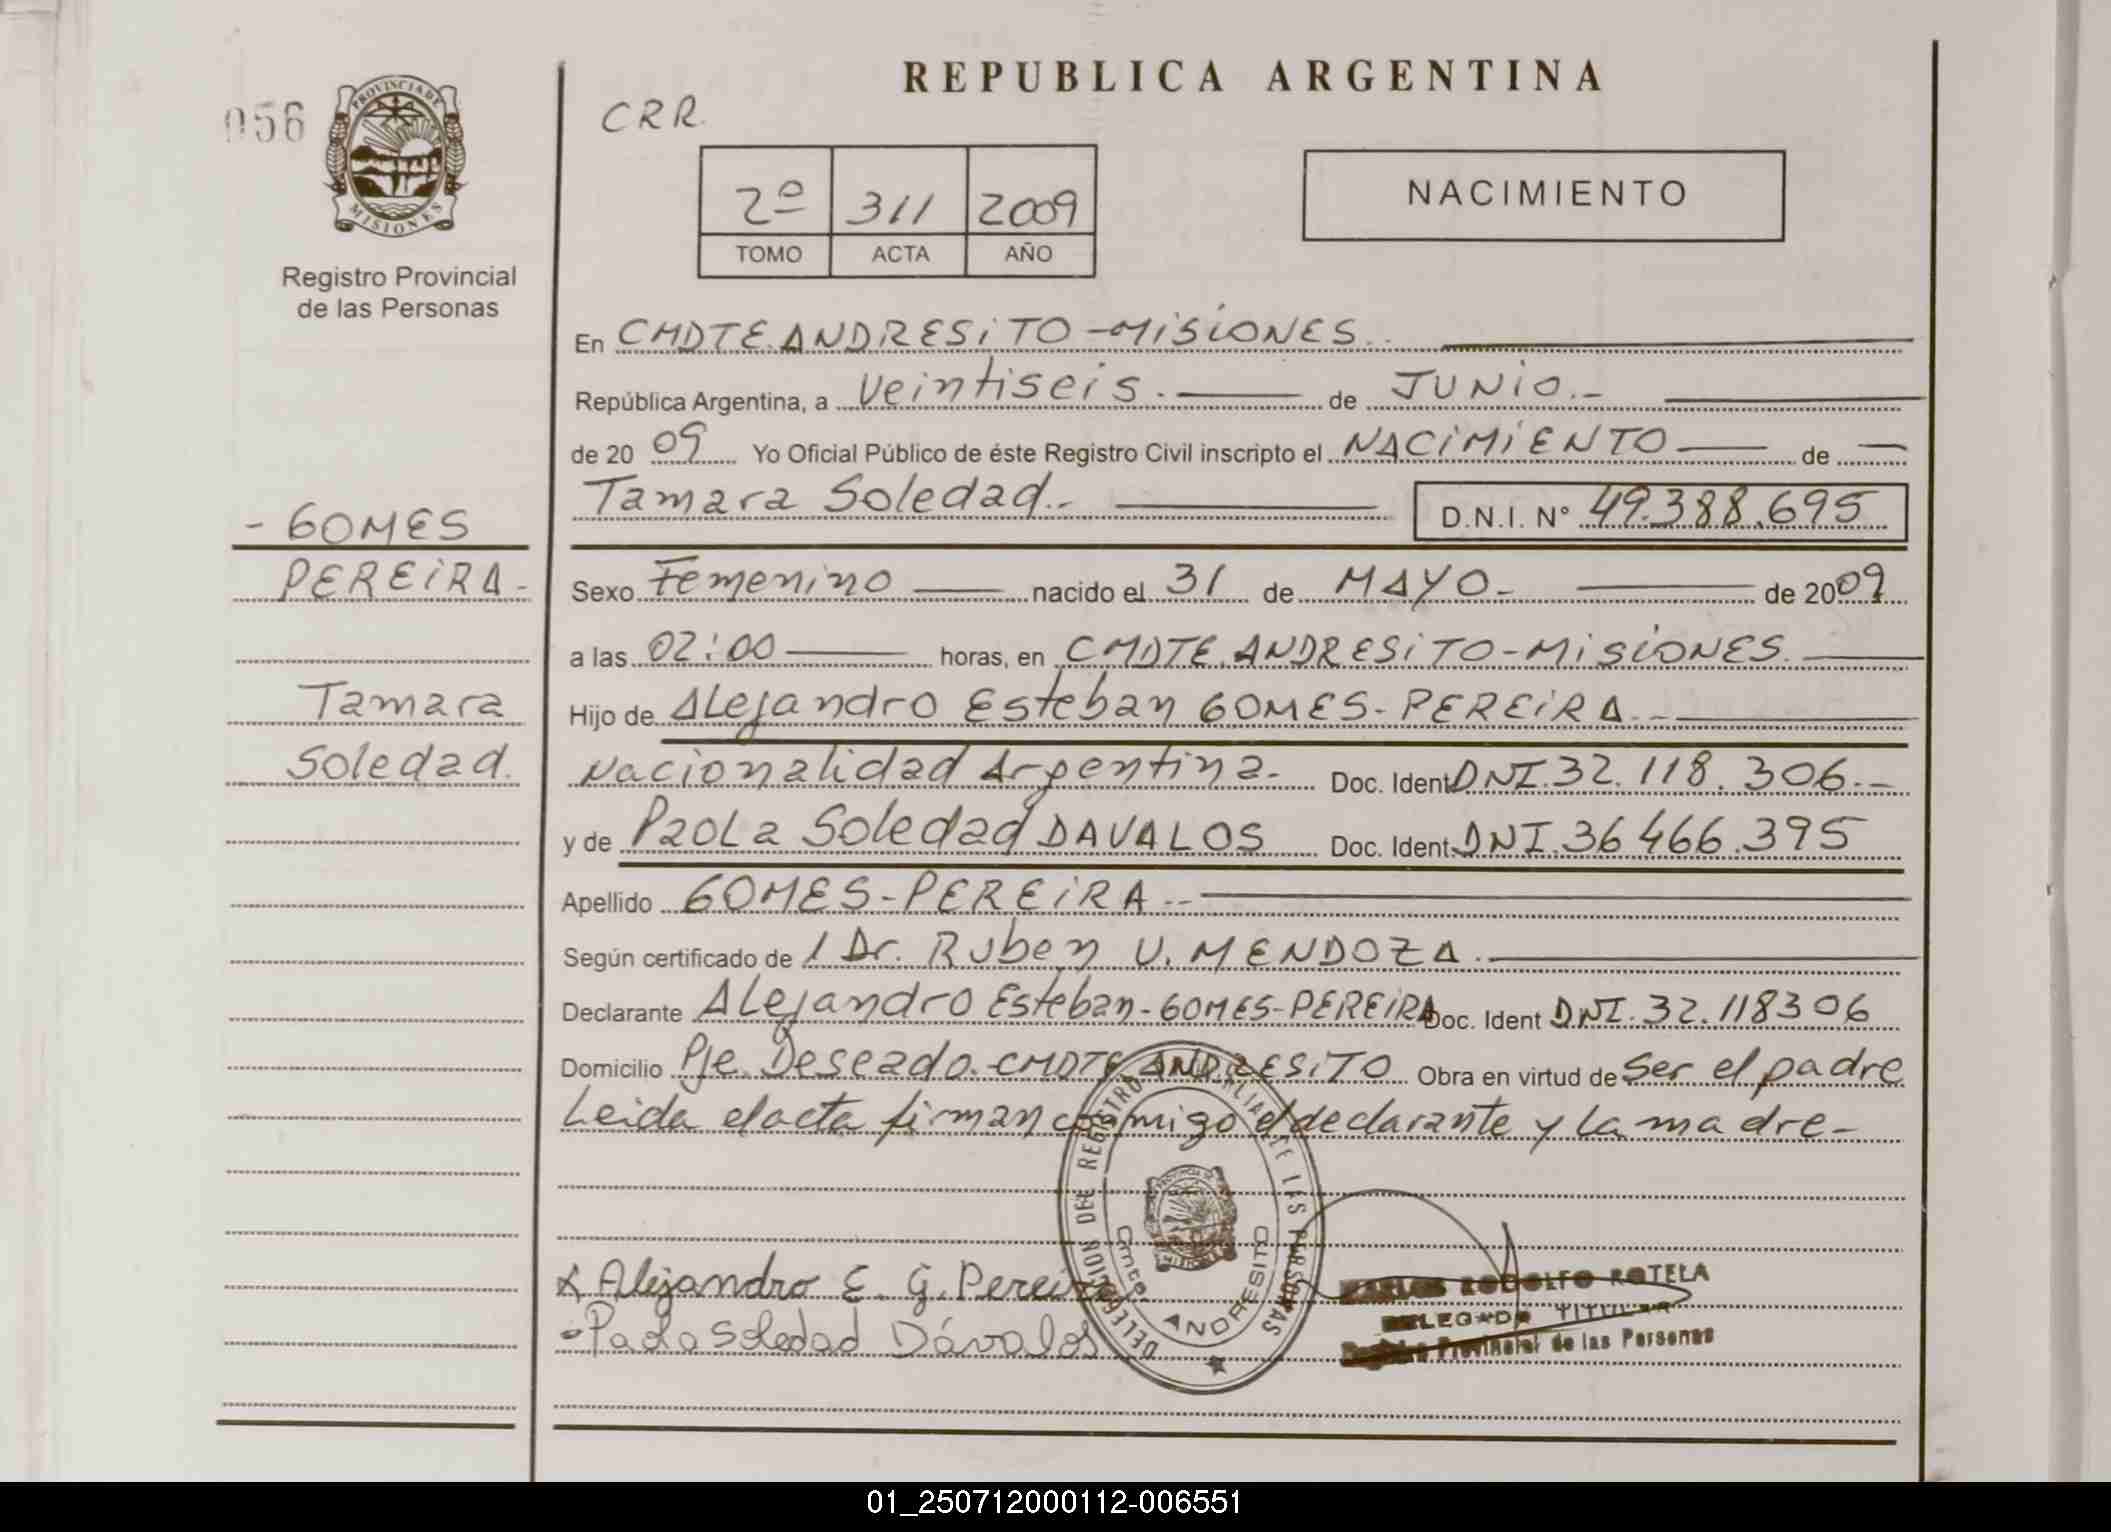 REPUBLICA ARGENTINA
056
PROVINCIA DE
MISIONES
Registro Provincial
de las Personas
CRR.
2º 311 2009
TOMO ACTA AÑO
NACIMIENTO
En CMDTE.ANDRESiTO-MiSiONES..
República Argentina, a veintiseis. de JUNiO.-
de 2009 Yo Oficial Público de éste Registro Civil inscripto el NACiMiENTO de
Tamara Soledad.- D.N.I. N° 49.388.695
- GOMES
PEREiRA-
Tamara
Soledad.
Sexo Femenino nacido el 31 de MAYO- de 2009
a las 02:00 horas, en CMDTE.ANDRESiTO-MiSiONES.
Hijo de ALejandro Esteban GOMES-PEREiRA.-
Nacionalidad Argentina. Doc. Ident DNI.32.118.306.-
y de PaoLa Soledad DAVALOS Doc. Ident. DNI.36466.395
Apellido GOMES-PEREiRA.-
Según certificado de l Dr. Ruben U. MENDOZA.
Declarante ALejandro Esteban-GOMES-PEREiRA Doc. Ident DNI.32.118306
Domicilio Pje. Deseado.-CMDTE ANDRESiTO Obra en virtud de ser el padre
Leida el acta firman conmigo el declarante y La madre-
DELEGACION DEL REGISTRO DE LAS PERSONAS
Cmte. ANDRESITO
x Alejandro E. G. Pereira
- Paola Soledad Dávalos
RODOLFO ROTELA
DELEGADO TITULAR
Provincial de las Personas
01_250712000112-006551